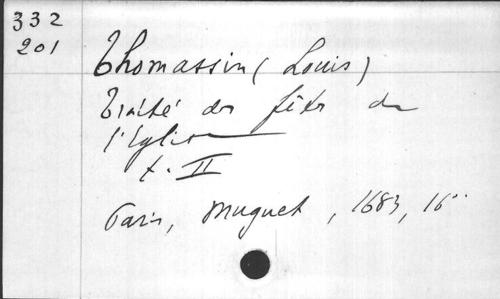 332
201
Thomassin (Louis)
Traité des fêtes de
l'Église
t. II
Paris, Muguet, 1683, 16°